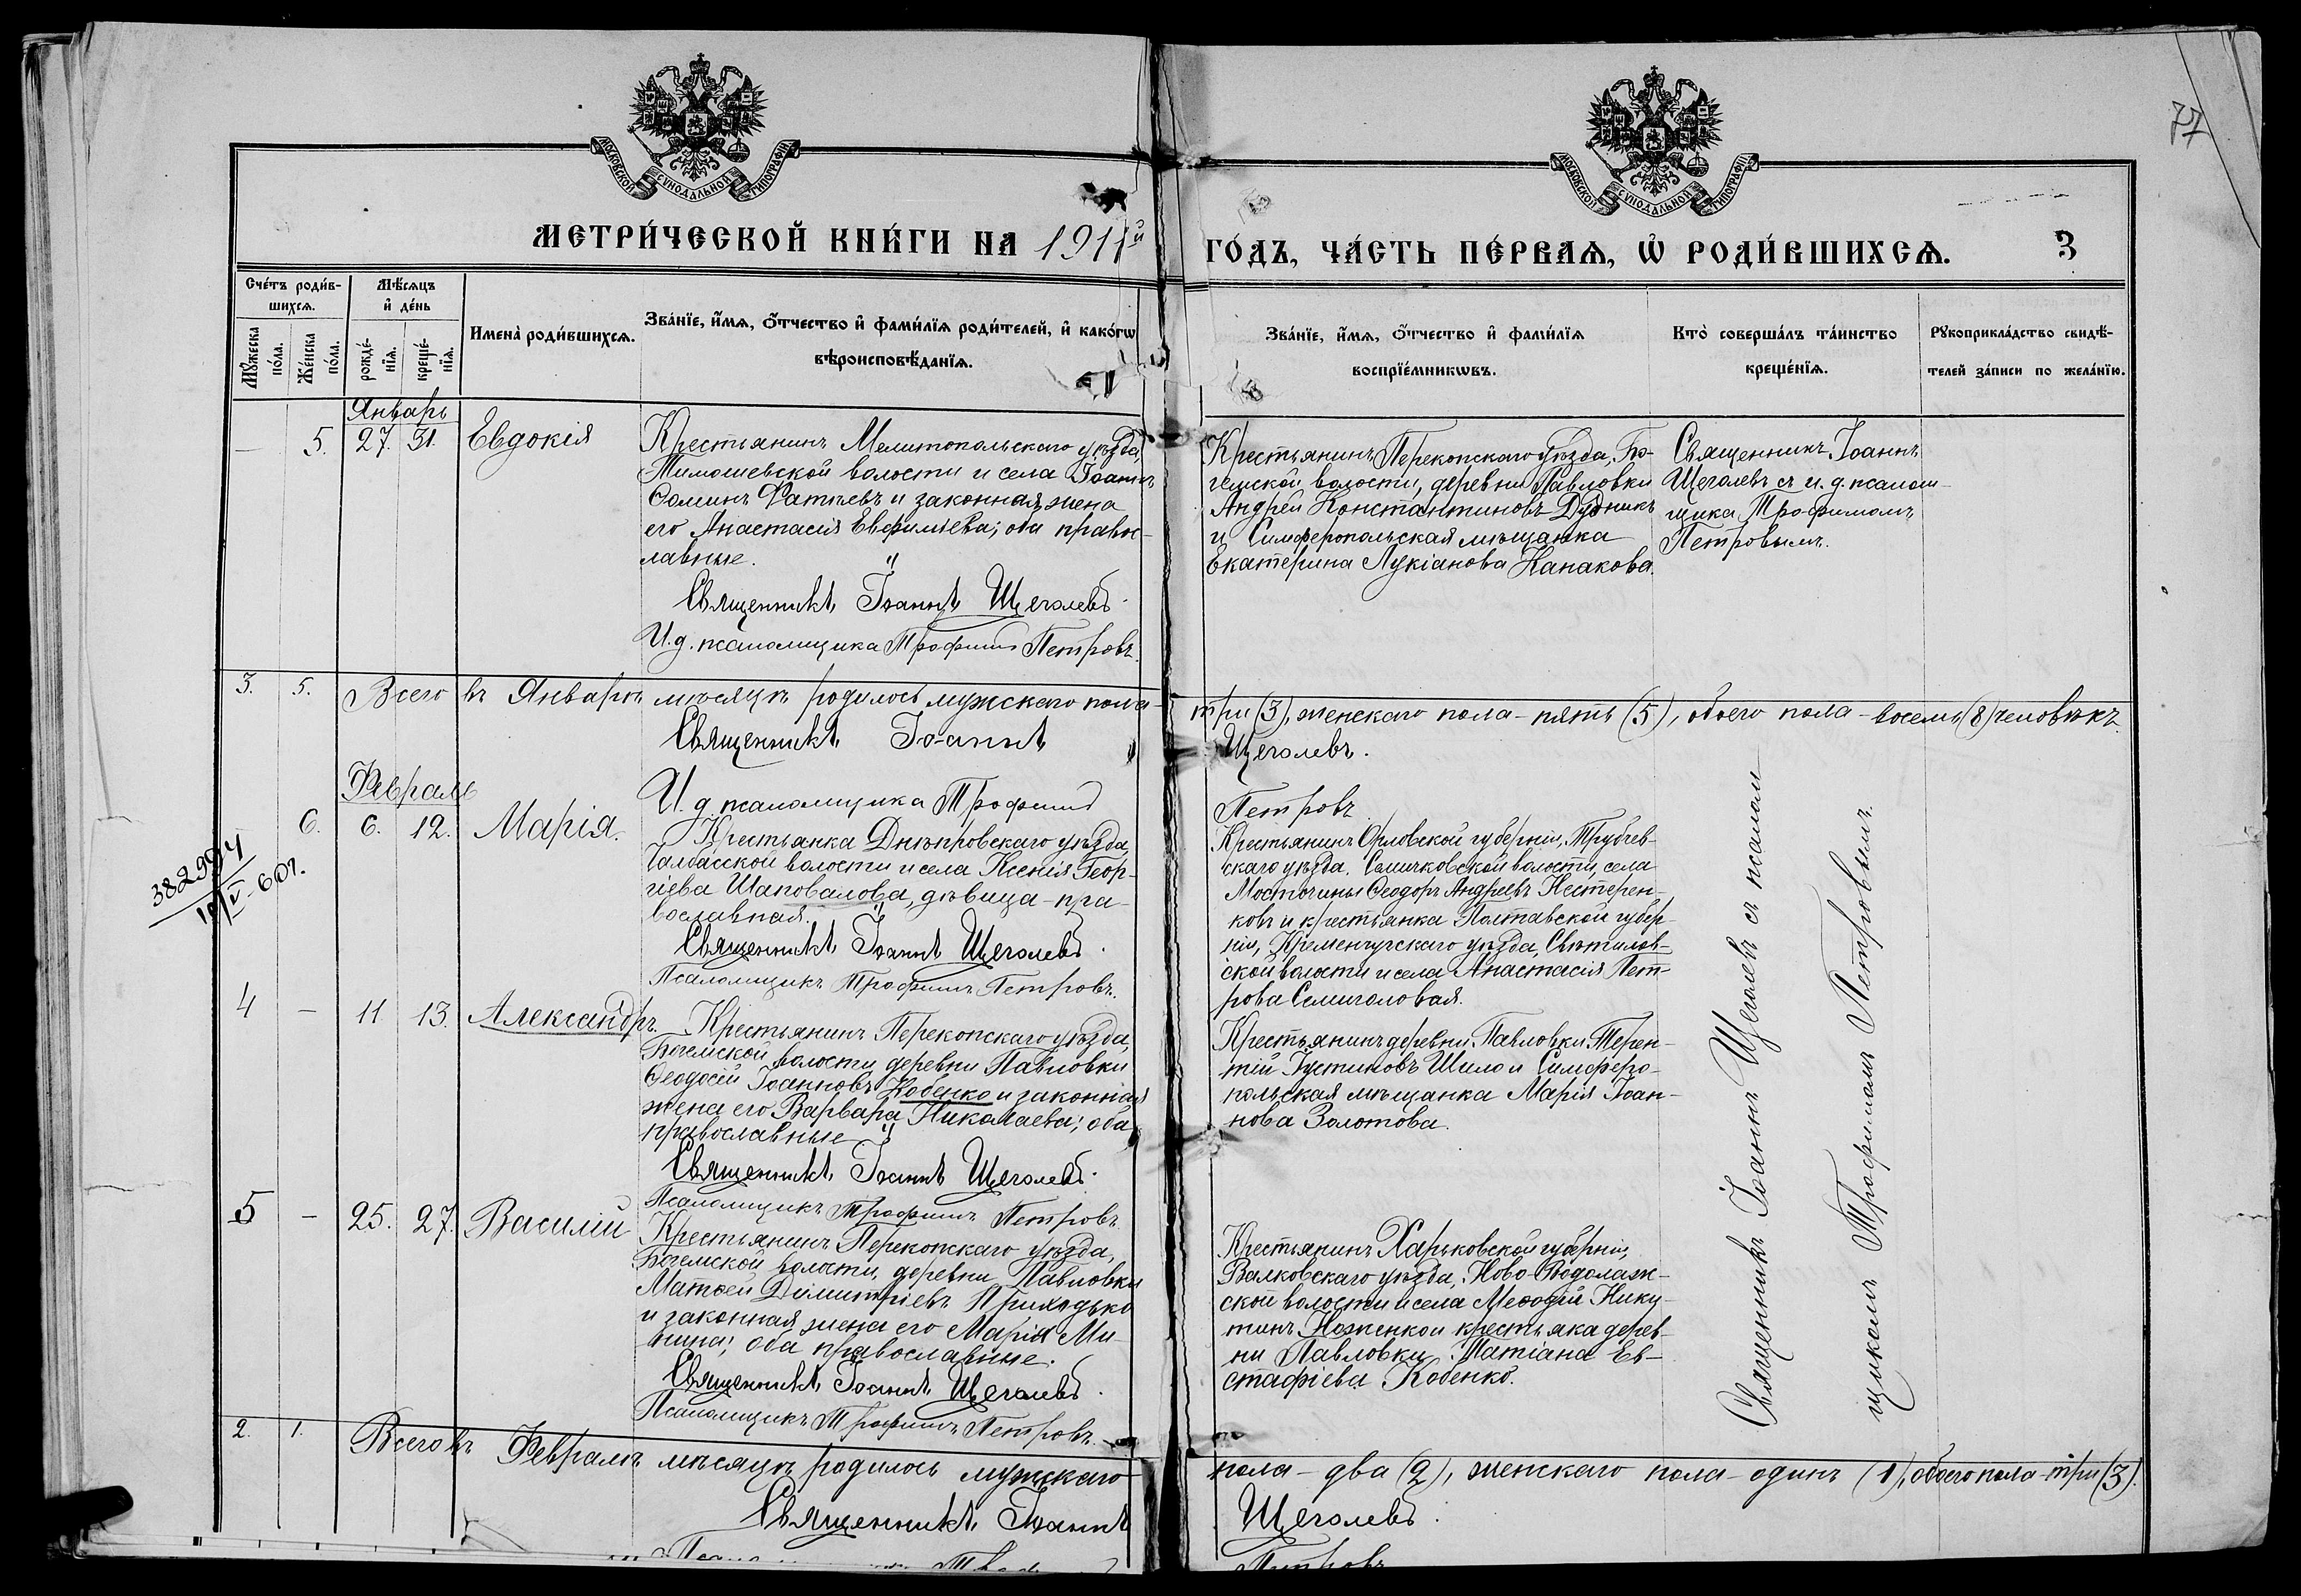 77
МОСКОВСКОЙ СѴНОДАЛЬНОЙ ТИПОГРАФІИ
МОСКОВСКОЙ СѴНОДАЛЬНОЙ ТИПОГРАФІИ
МЕТРИ́ЧЕСКОЙ КНИ́ГИ НА 1911й
ГО́ДЪ, ЧА́СТЬ ПЕ́РВАѦ, Ѡ҆ РОДИ́ВШИХСѦ. 3
Сче́тъ роди́в-
шихсѧ.
Мꙋ́жеска
по́ла.
Же́нска
по́ла.
Мѣ́сѧцъ
и҆ де́нь
рожде́-
нїѧ.
креще́-
нїѧ.
Имена̀ роди́вшихсѧ.
Зва́нїе, и҆́мѧ, ѻ҆́тчество и҆ фами́лїѧ роди́телей, и҆ како́гѡ
вѣроисповѣ́данїѧ.
Зва́нїе, и҆́мѧ, ѻ҆́тчество и҆ фами́лїѧ
воспрїе́мникѡвъ.
Кто̀ соверша́лъ та́инство
креще́нїѧ.
Рꙋкоприкла́дство свидѣ́-
телей за́писи по жела́нїю.
Январь
— 5. 27. 31. Евдокія
Крестьянинъ Мелитопольскаго уѣзда,
Тимошевской волости и села Іоаннъ
Ѳоминъ Фатѣевъ и законная жена
его Анастасія Евфиміева; оба правос-
лавные.
Священникъ Іоаннъ Щеголевъ.
И.д. псаломщика Трофимъ Петровъ.
Крестьянинъ Перекопскаго уѣзда, Бо-
гемской волости, деревни Павловки
Андрей Константиновъ Дудникъ
и Симферопольская мѣщанка
Екатерина Лукіанова Канакова.
Священникъ Іоаннъ
Щеголевъ съ и.д. псалом-
щика Трофимомъ
Петровымъ.
3. 5. Всего въ Январѣ мѣсяцѣ родилось мужскаго пола-
три (3), женскаго пола - пять (5), обоего пола - восемь (8) человѣкъ.
Священникъ Іоаннъ
Щеголевъ.
И.д. псаломщика Трофимъ
Петровъ
Февраль
6. 6. 12. Марія.
382994
10/V-60г.
Крестьянка Днѣпровскаго уѣзда,
Чалбасской волости и села Ксенія Геор-
гіева Шаповалова, дѣвица - пра-
вославная.
Священникъ Іоаннъ Щеголевъ.
Псаломщикъ Трофимъ Петровъ.
Крестьянинъ Орловской губерніи, Трубчев-
скаго уѣзда. Семичковской волости, села
Мосточины Ѳеодоръ Андреевъ Нестерен-
ковъ и крестьянка Полтавской губер-
ніи, Кременчугскаго уѣзда, Свѣтилов-
ской волости и села Анастасія Пет-
рова Семиголовая.
4 — 11 13. Александръ.
Крестьянинъ Перекопскаго уѣзда,
Богемской волости деревни Павловки
Ѳеодосій Іоанновъ Кобенко и законная
жена его Варвара Николаева; оба
православные
Священникъ Іоаннъ Щеголевъ.
Псаломщикъ Трофимъ Петровъ
Крестьянинъ деревни Павловки Терен-
тій Іустиновъ Шило и Симферо-
польская мѣщанка Марія Іоан-
нова Золотова.
5 — 25. 27. Василій
Крестьянинъ Перекопскаго уѣзда,
Богемской волости, деревни Павловки
Матѳей Димитріевъ Приходько
и законная жена его Марія Ми-
нина; оба православные.
Священникъ Іоаннъ Щеголевъ.
Псаломщикъ Трофимъ Петровъ.
Крестьянинъ Харьковской губерніи,
Валковскаго уѣзда, Ново-Водолаж-
ской волости и села Меѳодій Ники-
тинъ Ноженко и крестьяка дерев-
ни Павловки Татіана Ев-
стафіева Кобенко.
Священникъ Іоаннъ Щеголевъ съ псалом-
щикомъ Трофимомъ Петровымъ.
2. 1. Всего въ Февралѣ мѣсяцѣ родилось мужскаго
пола - два (2), женскаго пола - одинъ (1), обоего пола - три (3).
Священникъ Іоаннъ
Щеголевъ.
Петровъ